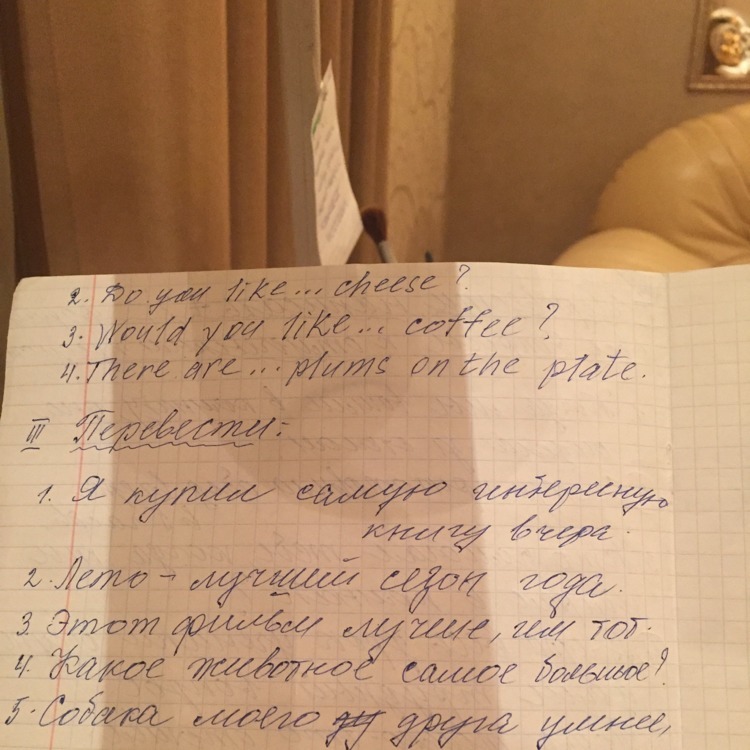 2. Do you like... cheese?
3. Would you like... coffee?
4. There are... plums on the plate.
III Перевести:
1. Я купил самую интересную
книгу вчера.
2. Лето - лучший сезон года.
3. Этот фильм лучше, чем тот.
4. Какое животное самое большое?
5. Собака моего друга умнее,